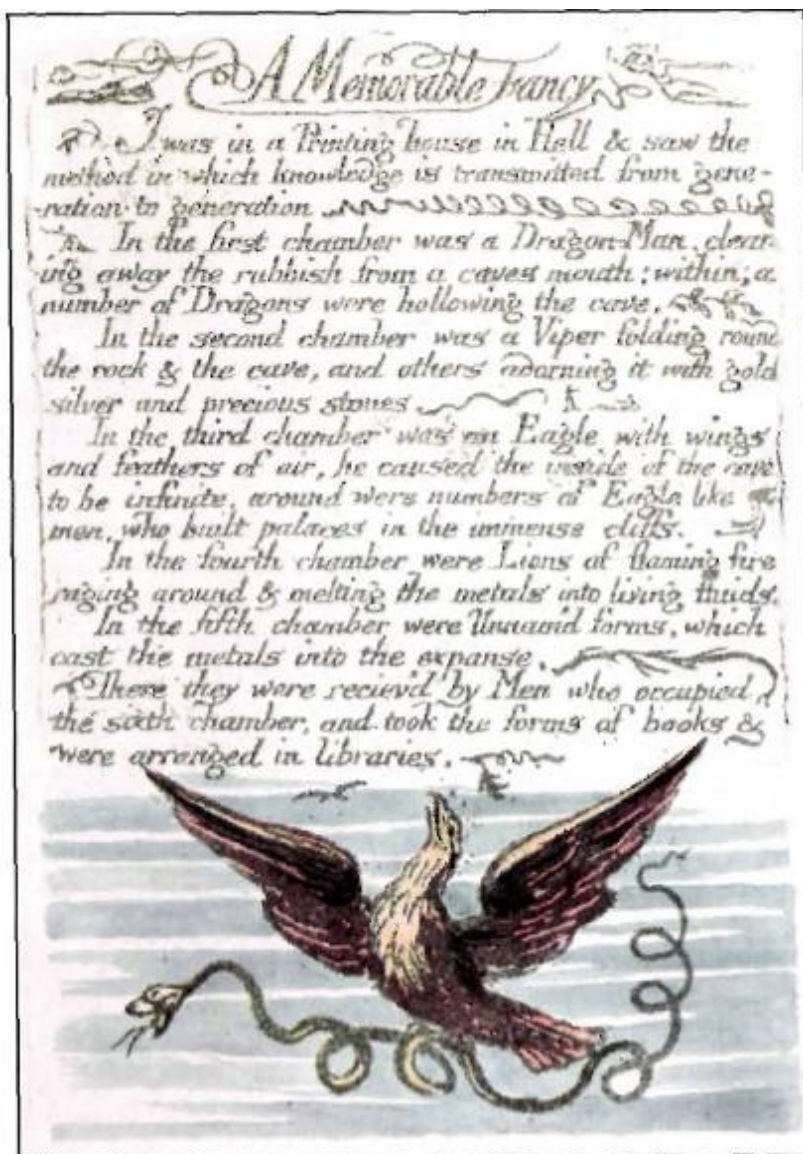 A Memorable Fancy
I was in a Printing house in Hell & saw the
method in which knowledge is transmitted from gene-
-ration to generation.
In the first chamber was a Dragon-Man, clear-
ing away the rubbish from a caves mouth; within, a
number of Dragons were hollowing the cave.
In the second chamber was a Viper folding round
the rock & the cave, and others adorning it with gold
silver and precious stones
In the third chamber was an Eagle with wings
and feathers of air, he caused the inside of the cave
to be infinite, around were numbers of Eagle like
men, who built palaces in the immense cliffs.
In the fourth chamber were Lions of flaming fire
raging around & melting the metals into living fluids.
In the fifth chamber were Unnam'd forms, which
cast the metals into the expanse.
There they were reciev'd by Men who occupied
the sixth chamber, and took the forms of books &
were arranged in libraries.